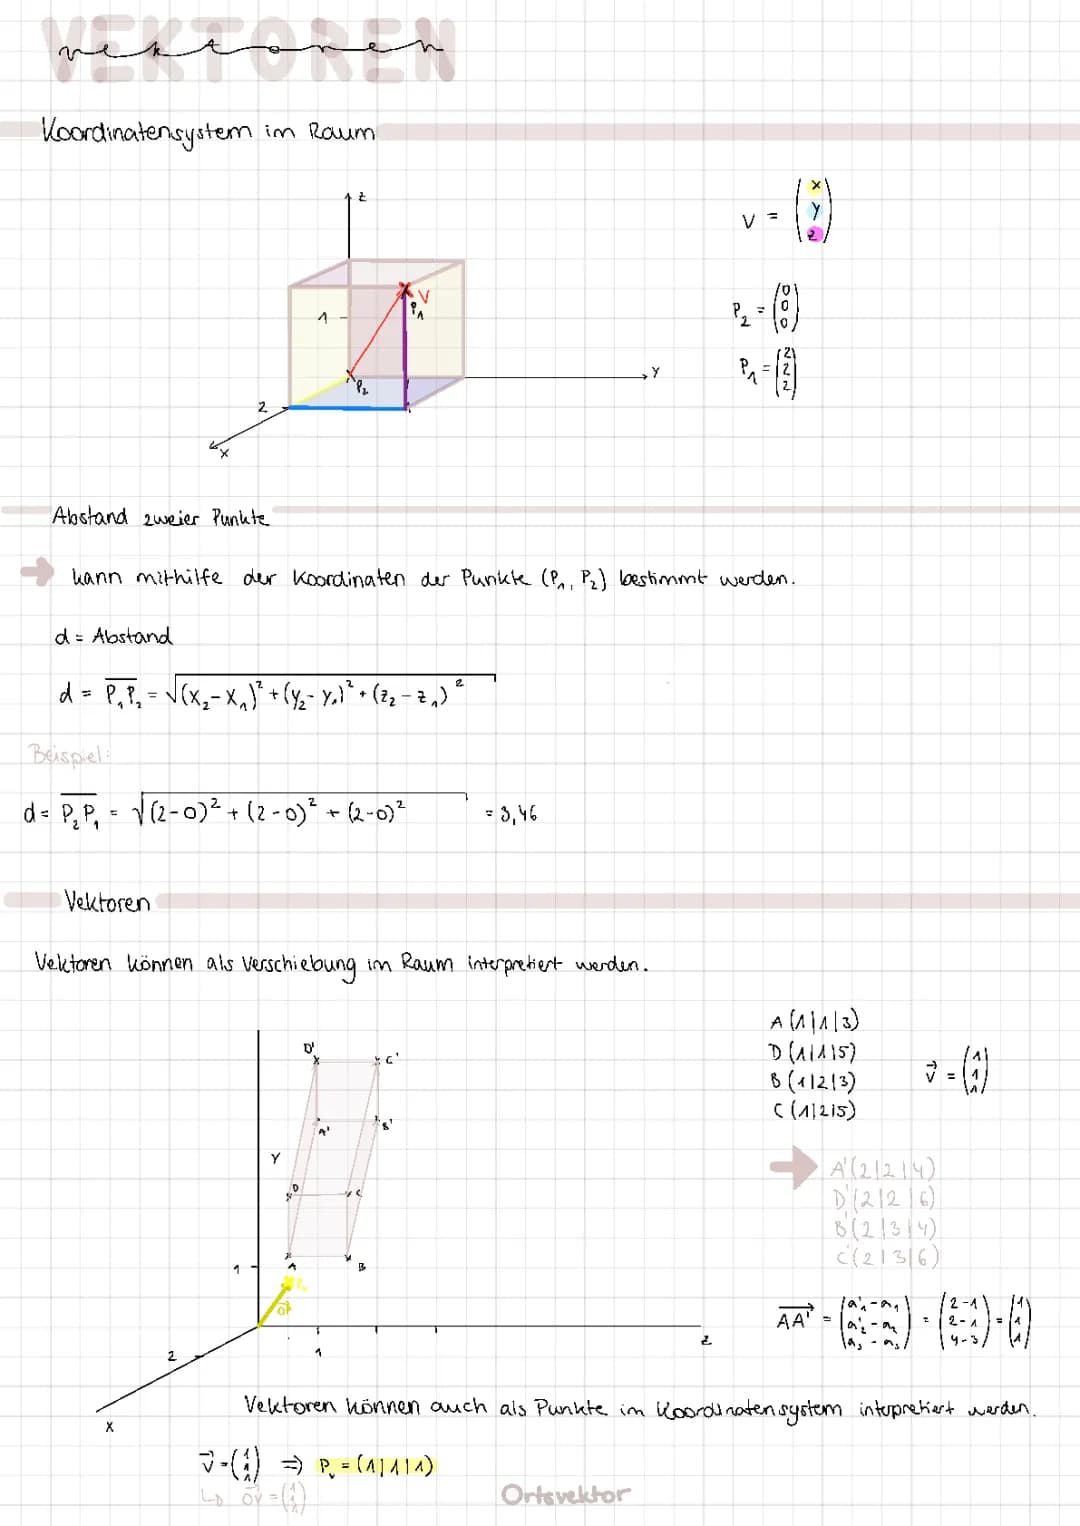 VEKTOREN
vektoren
Koordinatensystem im Raum
z
V = (x y z)
1
V
P₁
P₂ = (0 0 0)
P₁ = (2 2 2)
Y
P₂
2
x
Abstand zweier Punkte
→ kann mithilfe der Koordinaten der Punkte (P₁, P₂) bestimmt werden.
d = Abstand
d = P₁P₂ = √(x₂-x₁)² + (y₂-y₁)² + (z₂-z₁)²
Beispiel:
d = P₂P₁ = √(2-0)² + (2-0)² + (2-0)² = 3,46
Vektoren
Vektoren können als Verschiebung im Raum interpretiert werden.
A (1|1|3)
D (1|1|5)
B (1|2|3)
C (1|2|5)
v⃗ = (1 1 1)
D' C'
A' B'
Y
D C
A B
1
→ A'(2|2|4)
D'(2|2|6)
B'(2|3|4)
C'(2|3|6)
AA'⃗ = (a'₁-a₁ a'₂-a₂ a₃-a₃) = (2-1 2-1 4-3) = (1 1 1)
2
1
z
X
Vektoren können auch als Punkte im Koordinatensystem interpretiert werden.
v⃗ = (1 1 1) ⇒ Pᵥ = (1|1|1)
↳ OV⃗ = (1 1 1)
Ortsvektor